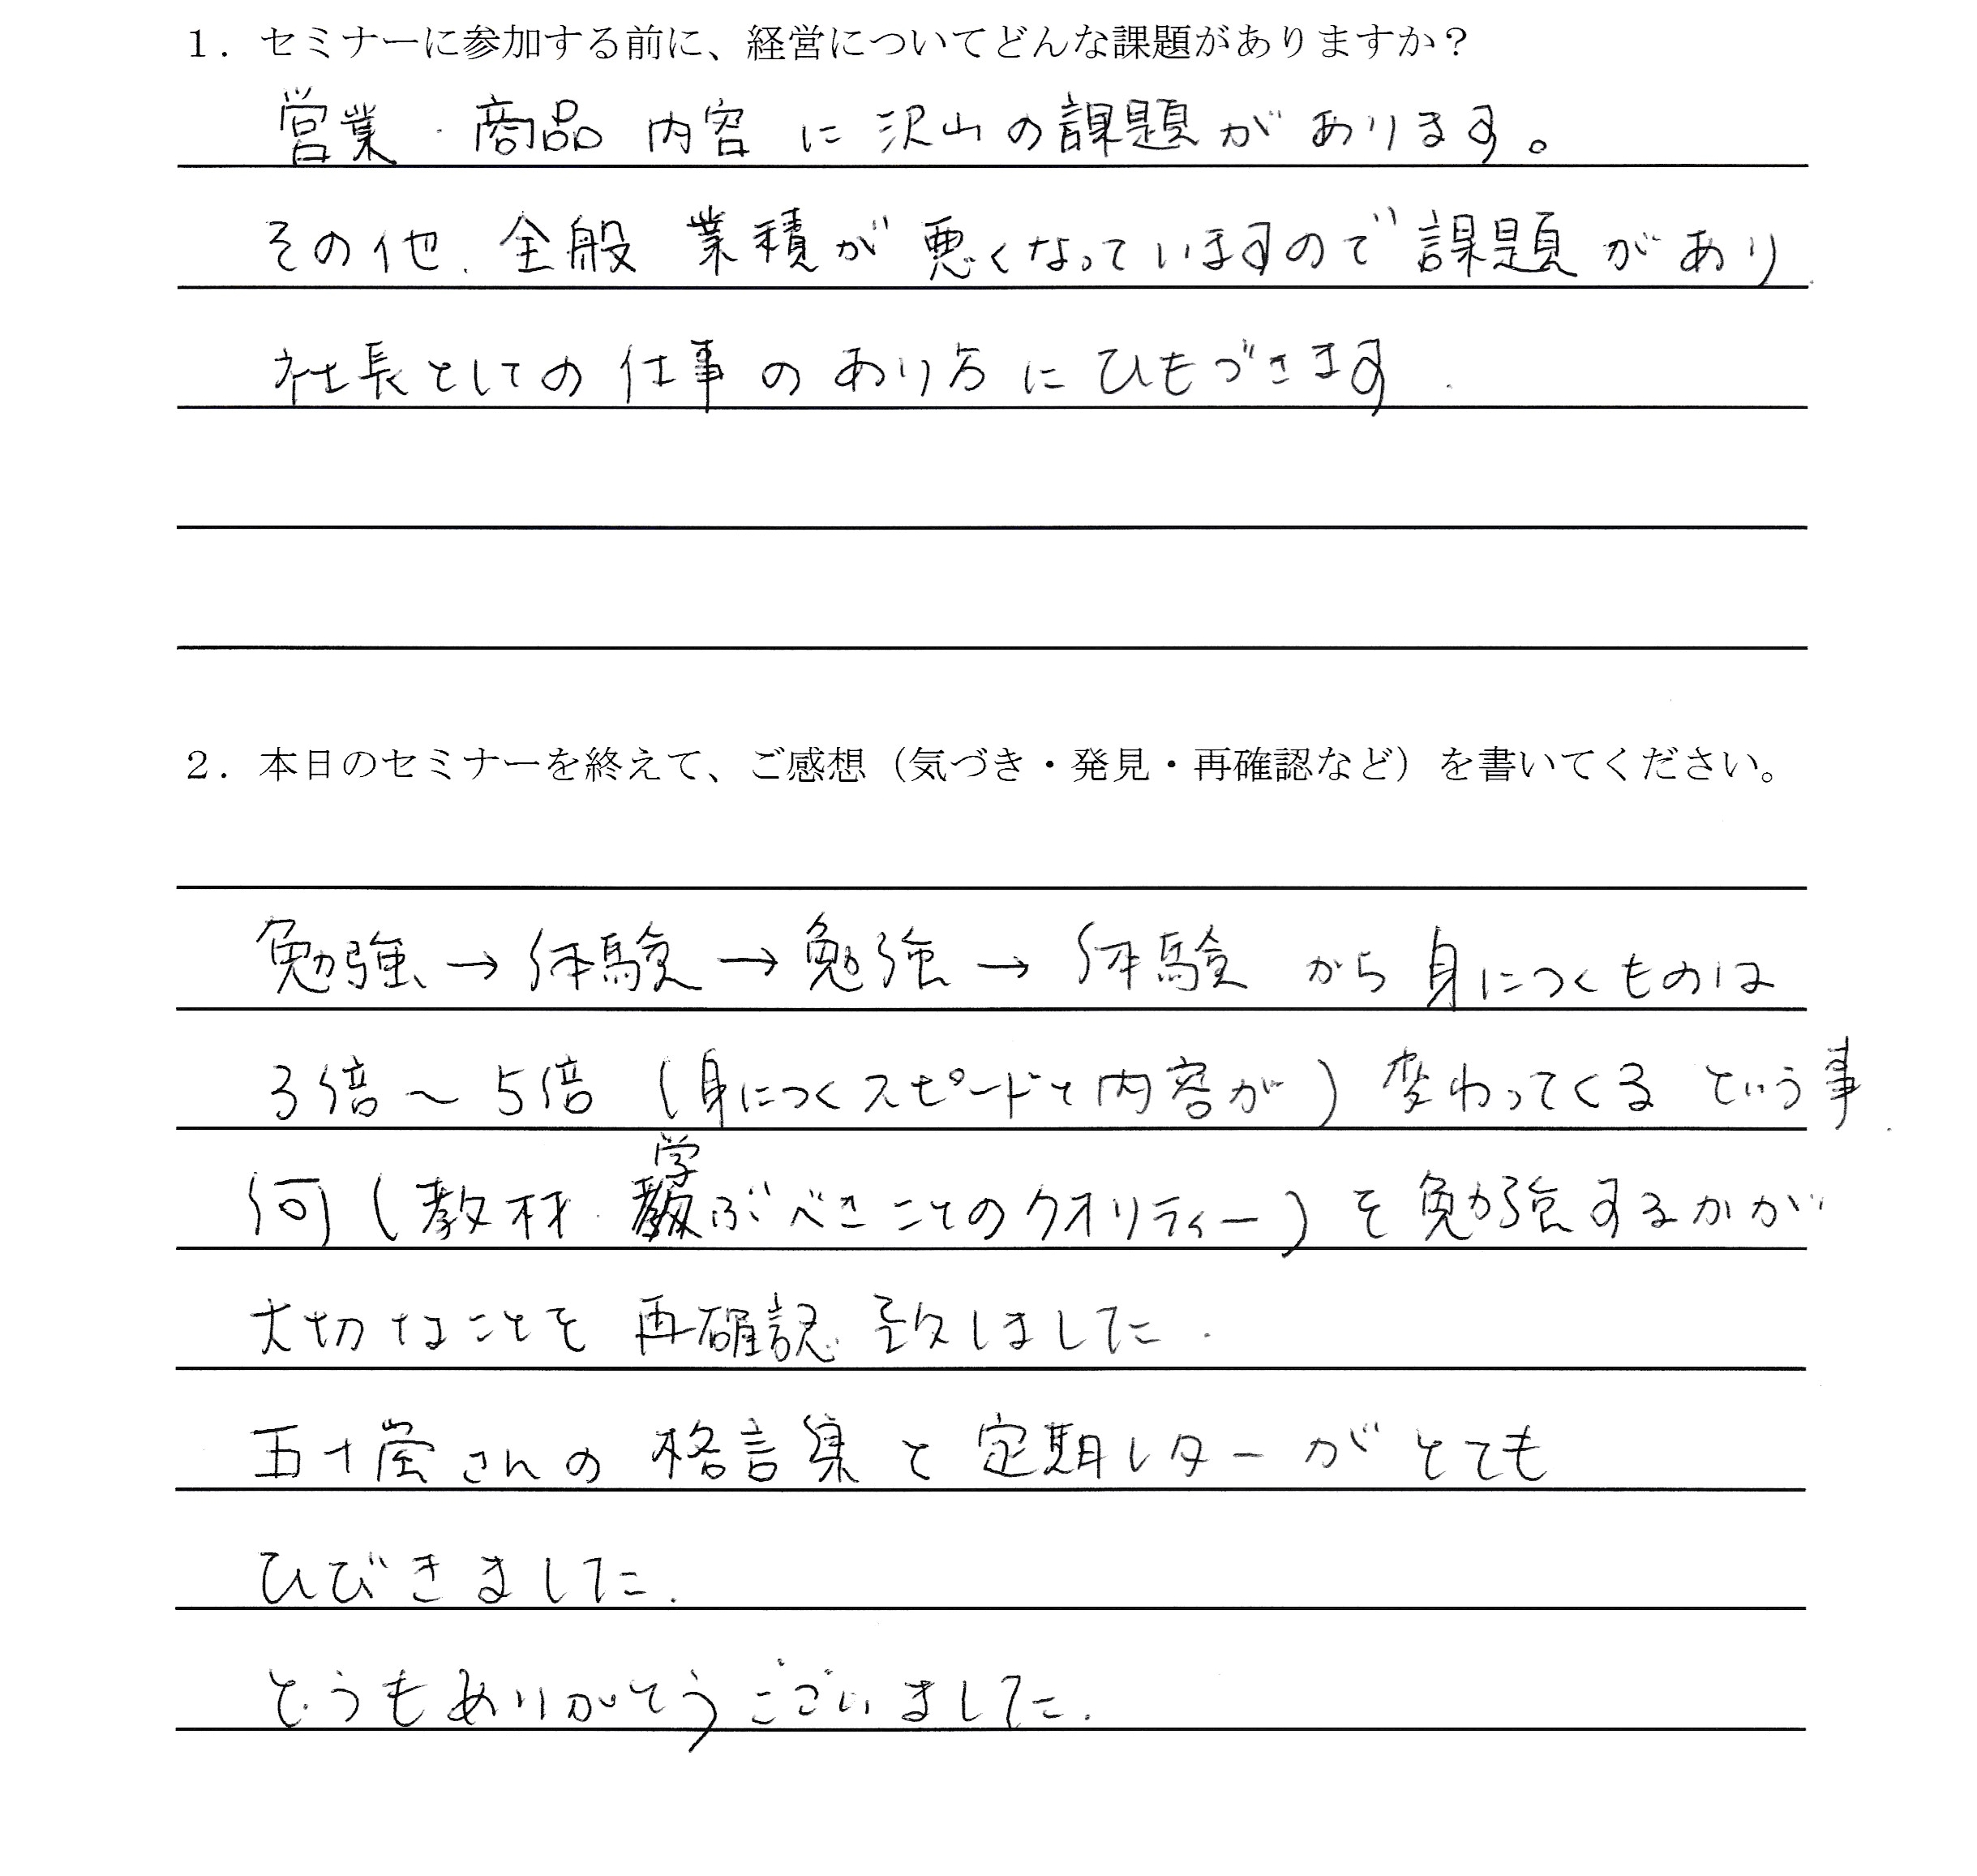 １．セミナーに参加する前に、経営についてどんな課題がありますか？
営業・商品内容に沢山の課題があります。
その他、全般業績が悪くなっていますので課題があり
社長としての仕事のあり方にひもづきます.
２．本日のセミナーを終えて、ご感想（気づき・発見・再確認など）を書いてください。
勉強→体験→勉強→体験から身につくものは
3倍〜5倍（身につくスピードと内容が）変わってくるという事.
何（教材・学ぶべきことのクオリティー）を勉強するかが
大切なことを再確認致しました.
五十嵐さんの格言集と定期レターがとても
ひびきました.
どうもありがとうございました.